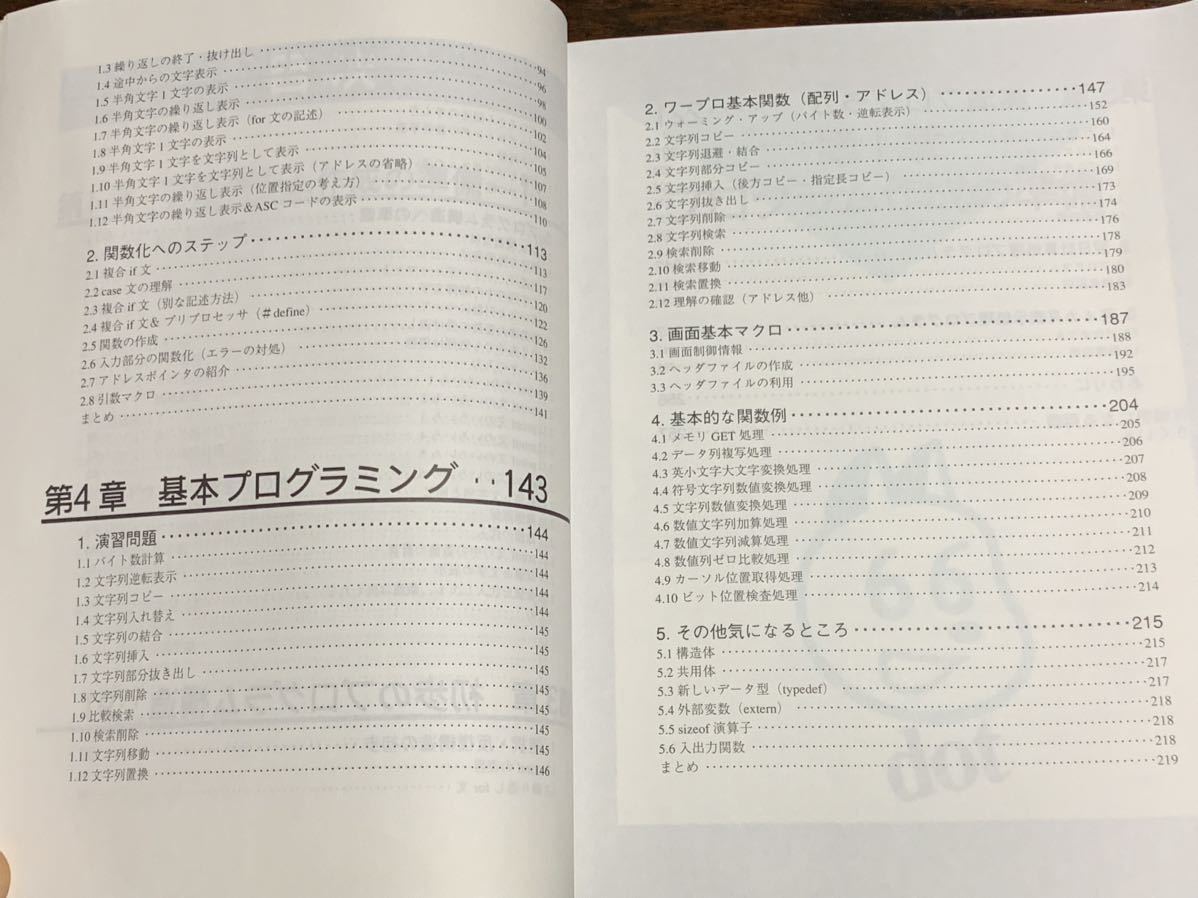 1.3 繰り返しの終了・抜け出し 94
1.4 途中からの文字表示 96
1.5 半角文字1文字の表示 98
1.6 半角文字の繰り返し表示 100
1.7 半角文字の繰り返し表示(for 文の記述) 102
1.8 半角文字1文字の表示 104
1.9 半角文字1文字を文字列として表示 105
1.10 半角文字1文字を文字列として表示(アドレスの省略) 107
1.11 半角文字の繰り返し表示(位置指定の考え方) 108
1.12 半角文字の繰り返し表示&ASC コードの表示 110
2. 関数化へのステップ 113
2.1 複合 if 文 113
2.2 case 文の理解 117
2.3 複合 if 文(別な記述方法) 120
2.4 複合 if 文& プリプロセッサ(#define) 122
2.5 関数の作成 126
2.6 入力部分の関数化(エラーの対処) 132
2.7 アドレスポインタの紹介 136
2.8 引数マクロ 139
まとめ 141
第4章 基本プログラミング ‥143
1. 演習問題 144
1.1 バイト数計算 144
1.2 文字列逆転表示 144
1.3 文字列コピー 144
1.4 文字列入れ替え 144
1.5 文字列の結合 145
1.6 文字列挿入 145
1.7 文字列部分抜き出し 145
1.8 文字列削除 145
1.9 比較検索 145
1.10 検索削除 145
1.11 文字列移動 145
1.12 文字列置換 146
2. ワープロ基本関数(配列・アドレス) 147
2.1 ウォーミング・アップ(バイト数・逆転表示) 152
2.2 文字列コピー 160
2.3 文字列退避・結合 164
2.4 文字列部分コピー 166
2.5 文字列挿入(後方コピー・指定長コピー) 169
2.6 文字列抜き出し 173
2.7 文字列削除 174
2.8 文字列検索 176
2.9 検索削除 178
2.10 検索移動 179
2.11 検索置換 180
2.12 理解の確認(アドレス他) 183
3. 画面基本マクロ 187
3.1 画面制御情報 188
3.2 ヘッダファイルの作成 192
3.3 ヘッダファイルの利用 195
4. 基本的な関数例 204
4.1 メモリ GET 処理 205
4.2 データ列複写処理 206
4.3 英小文字大文字変換処理 207
4.4 符号文字列数値変換処理 208
4.5 文字列数値変換処理 209
4.6 数値文字列加算処理 210
4.7 数値文字列減算処理 211
4.8 数値列ゼロ比較処理 212
4.9 カーソル位置取得処理 213
4.10 ビット位置検査処理 214
5. その他気になるところ 215
5.1 構造体 215
5.2 共用体 217
5.3 新しいデータ型(typedef) 217
5.4 外部変数(extern) 218
5.5 sizeof 演算子 218
5.6 入出力関数 218
まとめ 219